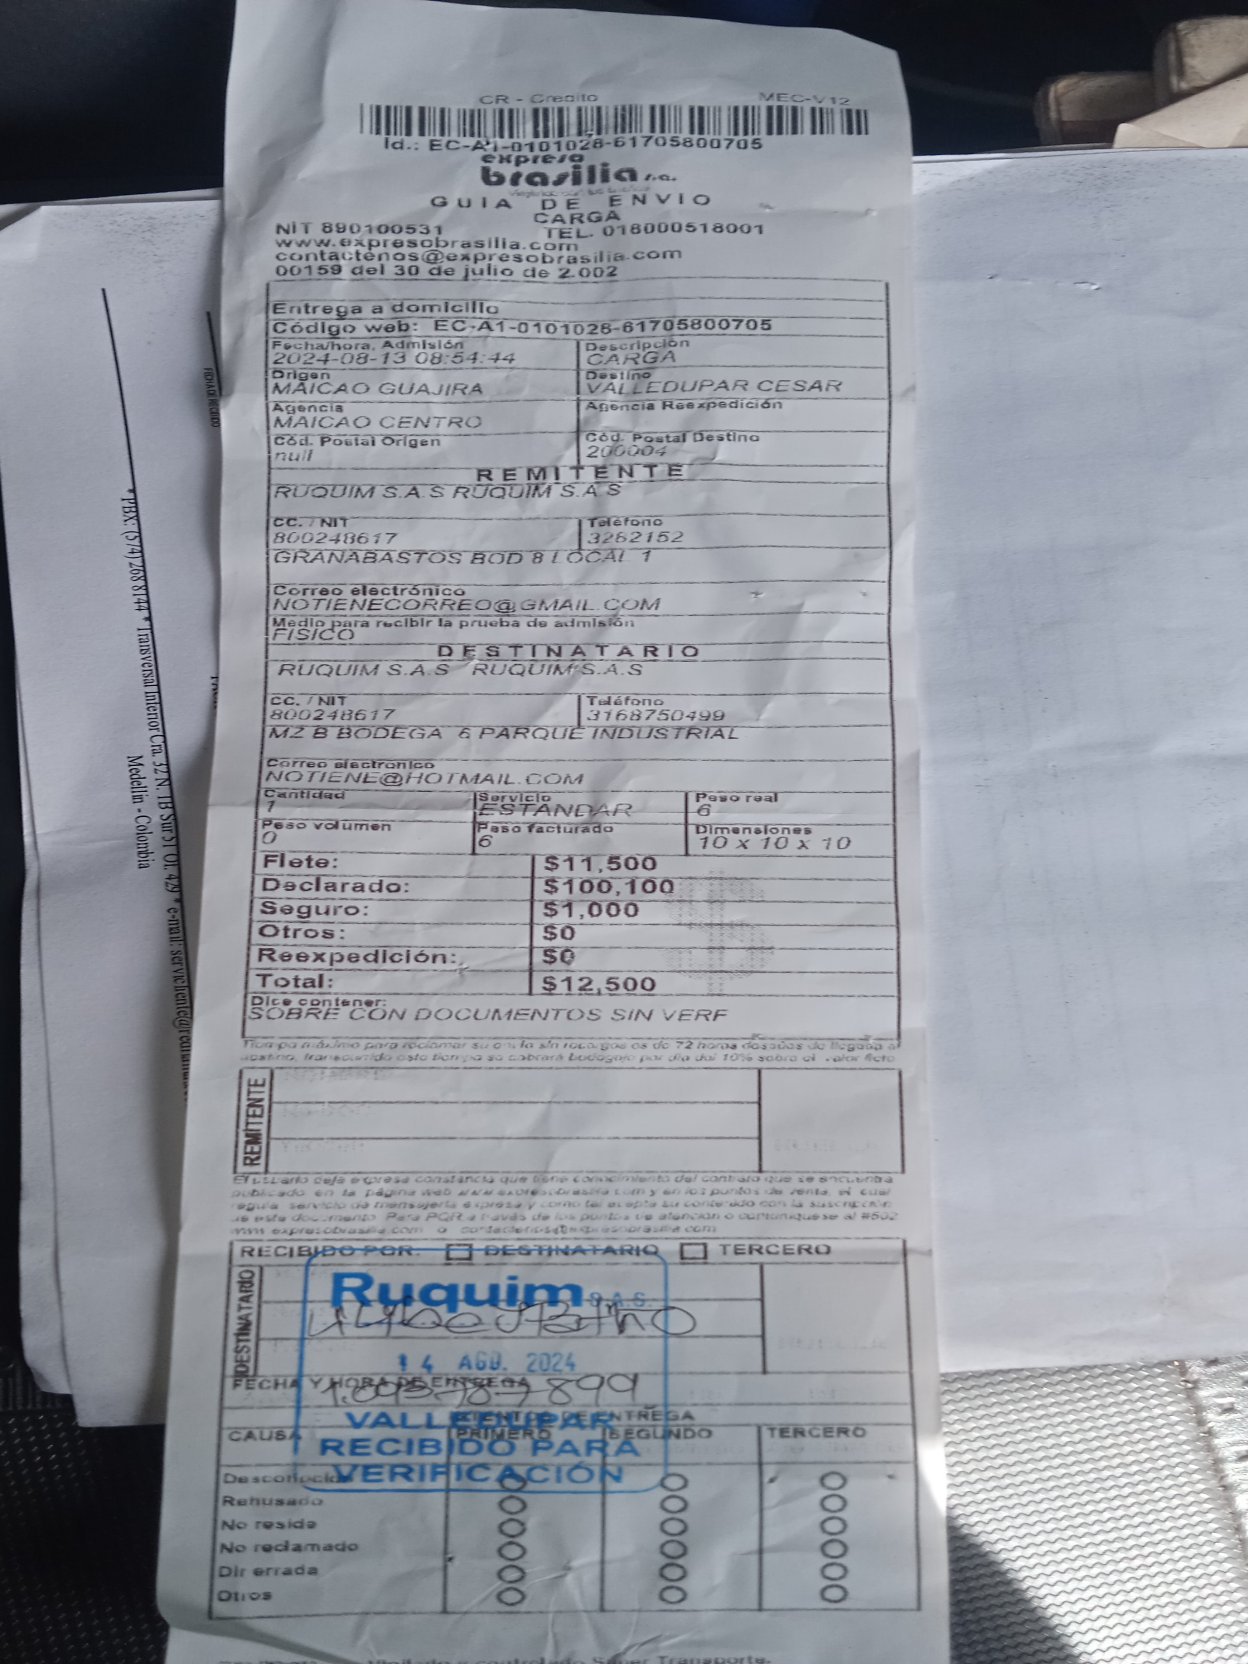 CR - Credito MEC-V12
Id.: EC-A1-0101028-61705800705
expreso
brasilia s.a.
GUIA DE ENVIO
CARGA
NIT 890100531 TEL. 018000518001
www.expresobrasilia.com
contactenos@expresobrasilia.com
00159 del 30 de julio de 2.002
Entrega a domicilio
Código web: EC-A1-0101028-61705800705
Fecha/hora, Admisión Descripción
2024-08-13 08:54:44 CARGA
Origen Destino
MAICAO GUAJIRA VALLEDUPAR CESAR
Agencia Agencia Reexpedición
MAICAO CENTRO
Cód. Postal Origen Cód. Postal Destino
null 200004
REMITENTE
RUQUIM S.A.S RUQUIM S.A.S
CC. / NIT Teléfono
800248617 3282152
GRANABASTOS BOD 8 LOCAL 1
Correo electrónico
NOTIENECORREO@GMAIL.COM
Medio para recibir la prueba de admisión
FISICO
DESTINATARIO
RUQUIM S.A.S RUQUIM S.A.S
CC. / NIT Teléfono
800248617 3168750499
MZ B BODEGA 6 PARQUE INDUSTRIAL
Correo electronico
NOTIENE@HOTMAIL.COM
Cantidad Servicio Peso real
1 ESTANDAR 6
Peso volumen Peso facturado Dimensiones
0 6 10 x 10 x 10
Flete: $11,500
Declarado: $100,100
Seguro: $1,000
Otros: $0
Reexpedición: $0
Total: $12,500
Dice contener:
SOBRE CON DOCUMENTOS SIN VERF
Tiempo máximo para reclamar su envío sin recargos es de 72 horas desadas de llegada al
destino, transcurrido este tiempo se cobrará bodegaje por día del 10% sobre el valor flete
REMITENTE
El usuario deja expresa constancia que tiene conocimiento del contrato que se encuentra
publicado en la página web www.expresobrasilia.com y en los puntos de venta, el cual
regula servicio de mensajería expresa y como tal acepta su contenido con la suscripción
de este documento. Para PQR a través de los puntos de atención o comuníquese al #502
www.expresobrasilia.com o contactenos@expresobrasilia.com
RECIBIDO POR: DESTINATARIO TERCERO
DESTINATARIO
Ruquim S.A.S.
14 AGO. 2024
FECHA Y HORA DE ENTREGA
1.093-787-899
VALLEDUPAR
RECIBIDO PARA
VERIFICACIÓN
ENTREGA
CAUSA PRIMERO SEGUNDO TERCERO
Desconocido
Rehusado
No reside
No reclamado
Dir errada
Otros
Vigilado y controlado Super Transporte.
*PBX: (574) 268 8144 * Transversal Inferior Cra. 32 N. 1B Sur 51 Of. 429 * e-mail: servicliente@
Medellín - Colombia
FECHA DE RECIBIDO